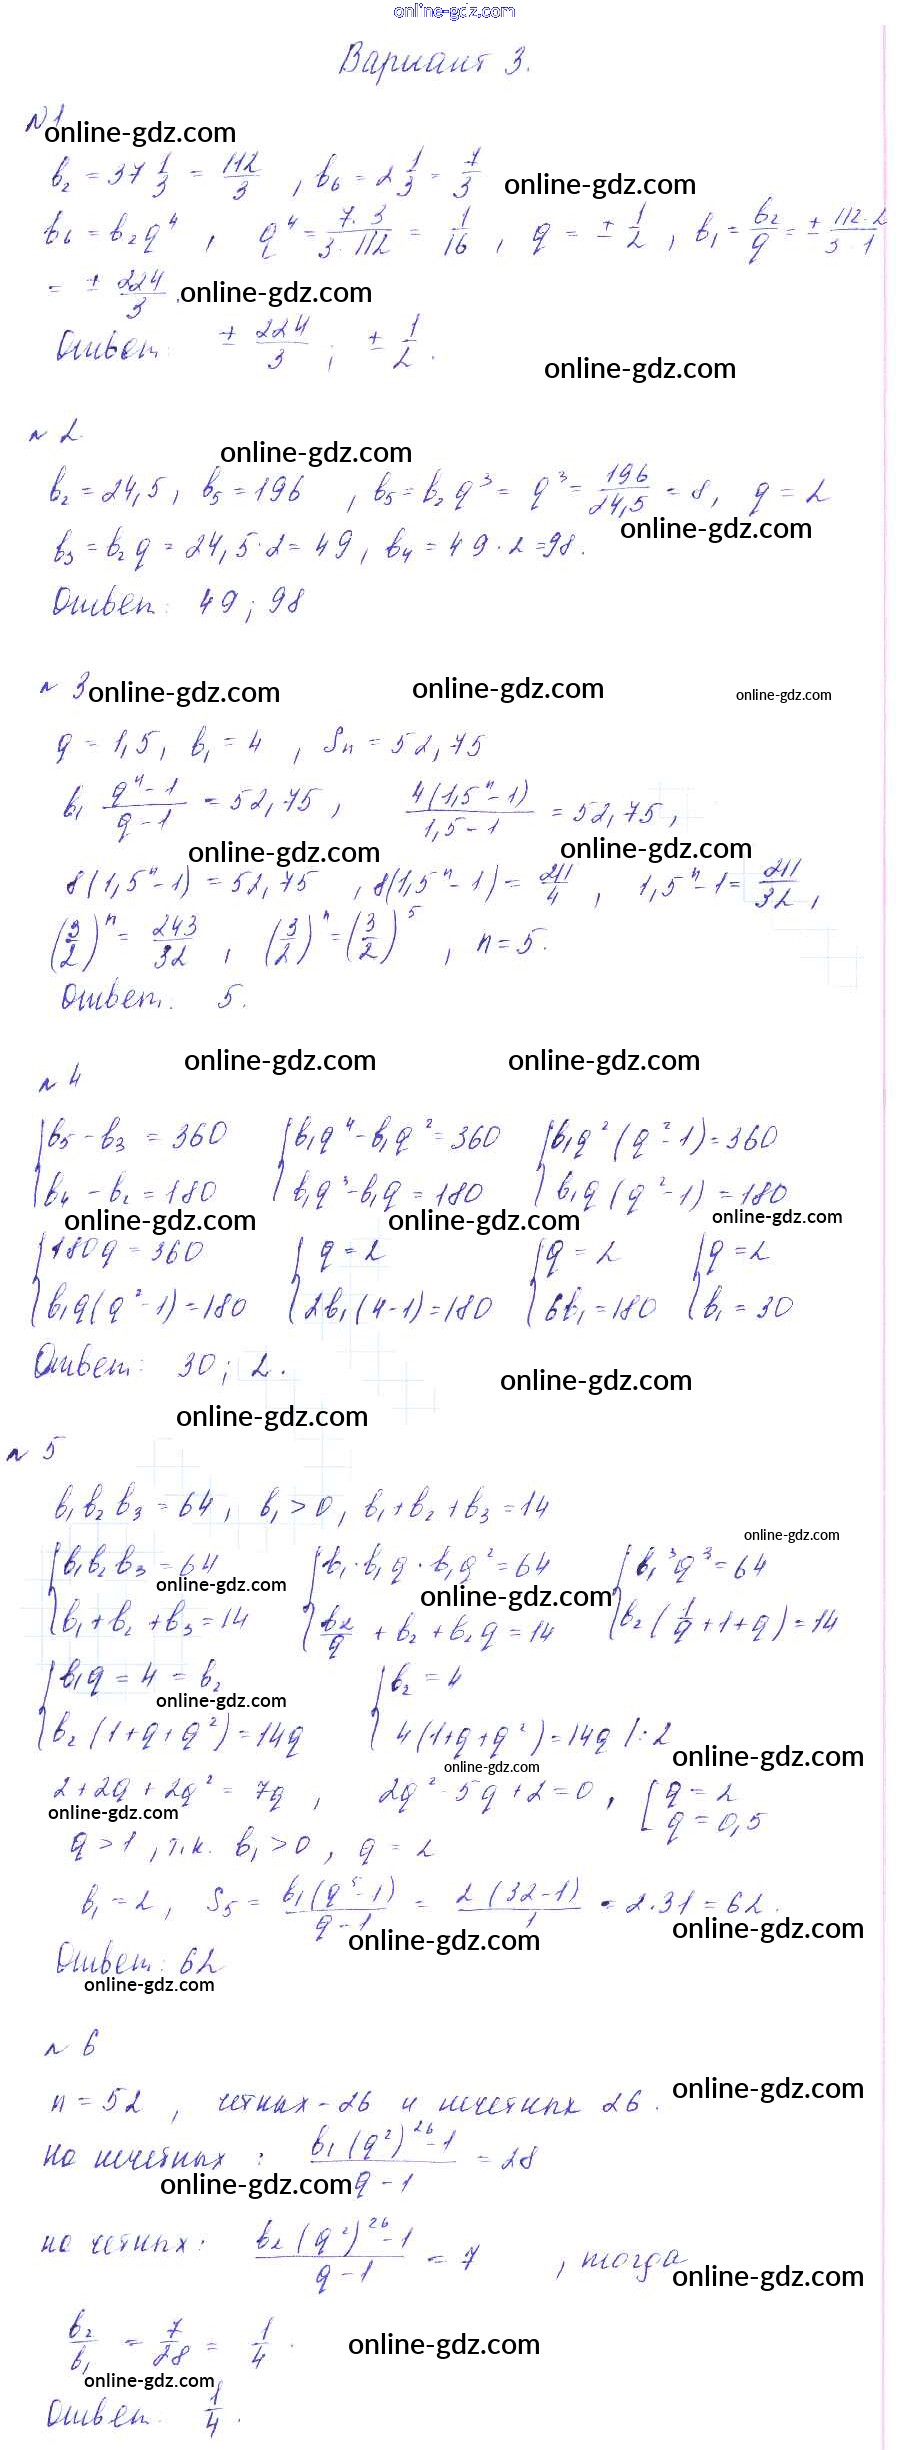 online-gdz.com
Вариант 3.
№1
online-gdz.com
b₂ = 37 1/3 = 112/3 , b₆ = 2 1/3 = 7/3
online-gdz.com
b₆ = b₂q⁴ , q⁴ = 7·3/3·112 = 1/16 , q = ± 1/2 , b₁ = b₂/q = ± 112·2/3·1
= ± 224/3 .
online-gdz.com
Ответ: ± 224/3 ; ± 1/2 .
online-gdz.com
№ 2
online-gdz.com
b₂ = 24,5 , b₅ = 196 , b₅ = b₂q³ = q³ = 196/24,5 = 8, q = 2
online-gdz.com
b₃ = b₂q = 24,5·2 = 49 , b₄ = 49·2 = 98.
Ответ: 49 ; 98
№ 3
online-gdz.com
online-gdz.com
online-gdz.com
q = 1,5 , b₁ = 4 , Sₙ = 52,75
b₁ (qⁿ-1)/(q-1) = 52,75 , 4(1,5ⁿ-1)/(1,5-1) = 52,75 ,
online-gdz.com
online-gdz.com
8(1,5ⁿ-1) = 52,75 , 8(1,5ⁿ-1) = 211/4 , 1,5ⁿ-1 = 211/32 ,
(3/2)ⁿ = 243/32 , (3/2)ⁿ = (3/2)⁵ , n = 5.
Ответ: 5.
online-gdz.com
online-gdz.com
№ 4
{b₅ - b₃ = 360 {b₁q⁴ - b₁q² = 360 {b₁q²(q²-1) = 360
b₄ - b₂ = 180 b₁q³ - b₁q = 180 b₁q(q²-1) = 180
online-gdz.com
online-gdz.com
online-gdz.com
{180q = 360 {q = 2 {q = 2 {q = 2
b₁q(q²-1) = 180 2b₁(4-1) = 180 6b₁ = 180 b₁ = 30
Ответ: 30 ; 2.
online-gdz.com
online-gdz.com
№ 5
b₁b₂b₃ = 64 , b₁ > 0 , b₁+b₂+b₃ = 14
online-gdz.com
{b₁b₂b₃ = 64 {b₁·b₁q·b₁q² = 64 {b₁³q³ = 64
online-gdz.com
online-gdz.com
b₁+b₂+b₃ = 14 b₂/q + b₂ + b₂q = 14 b₂(1/q+1+q) = 14
{b₁q = 4 = b₂ {b₂ = 4
online-gdz.com
b₂(1+q+q²) = 14q 4(1+q+q²) = 14q |:2
online-gdz.com
online-gdz.com
2+2q+2q² = 7q , 2q²-5q+2 = 0 , [q = 2
q = 0,5
online-gdz.com
q > 1 , т.к. b₁ > 0 , q = 2
b₁ = 2 , S₅ = b₁(q⁵-1)/(q-1) = 2(32-1)/1 = 2·31 = 62 .
online-gdz.com
online-gdz.com
Ответ: 62
online-gdz.com
№ 6
online-gdz.com
n = 52 , четных - 26 и нечетных 26 .
на нечетных : b₁(q²)²⁶-1/q-1 = 28
online-gdz.com
на четных : b₂(q²)²⁶-1/q-1 = 7 , тогда
online-gdz.com
b₂/b₁ = 7/28 = 1/4 .
online-gdz.com
online-gdz.com
Ответ: 1/4 .